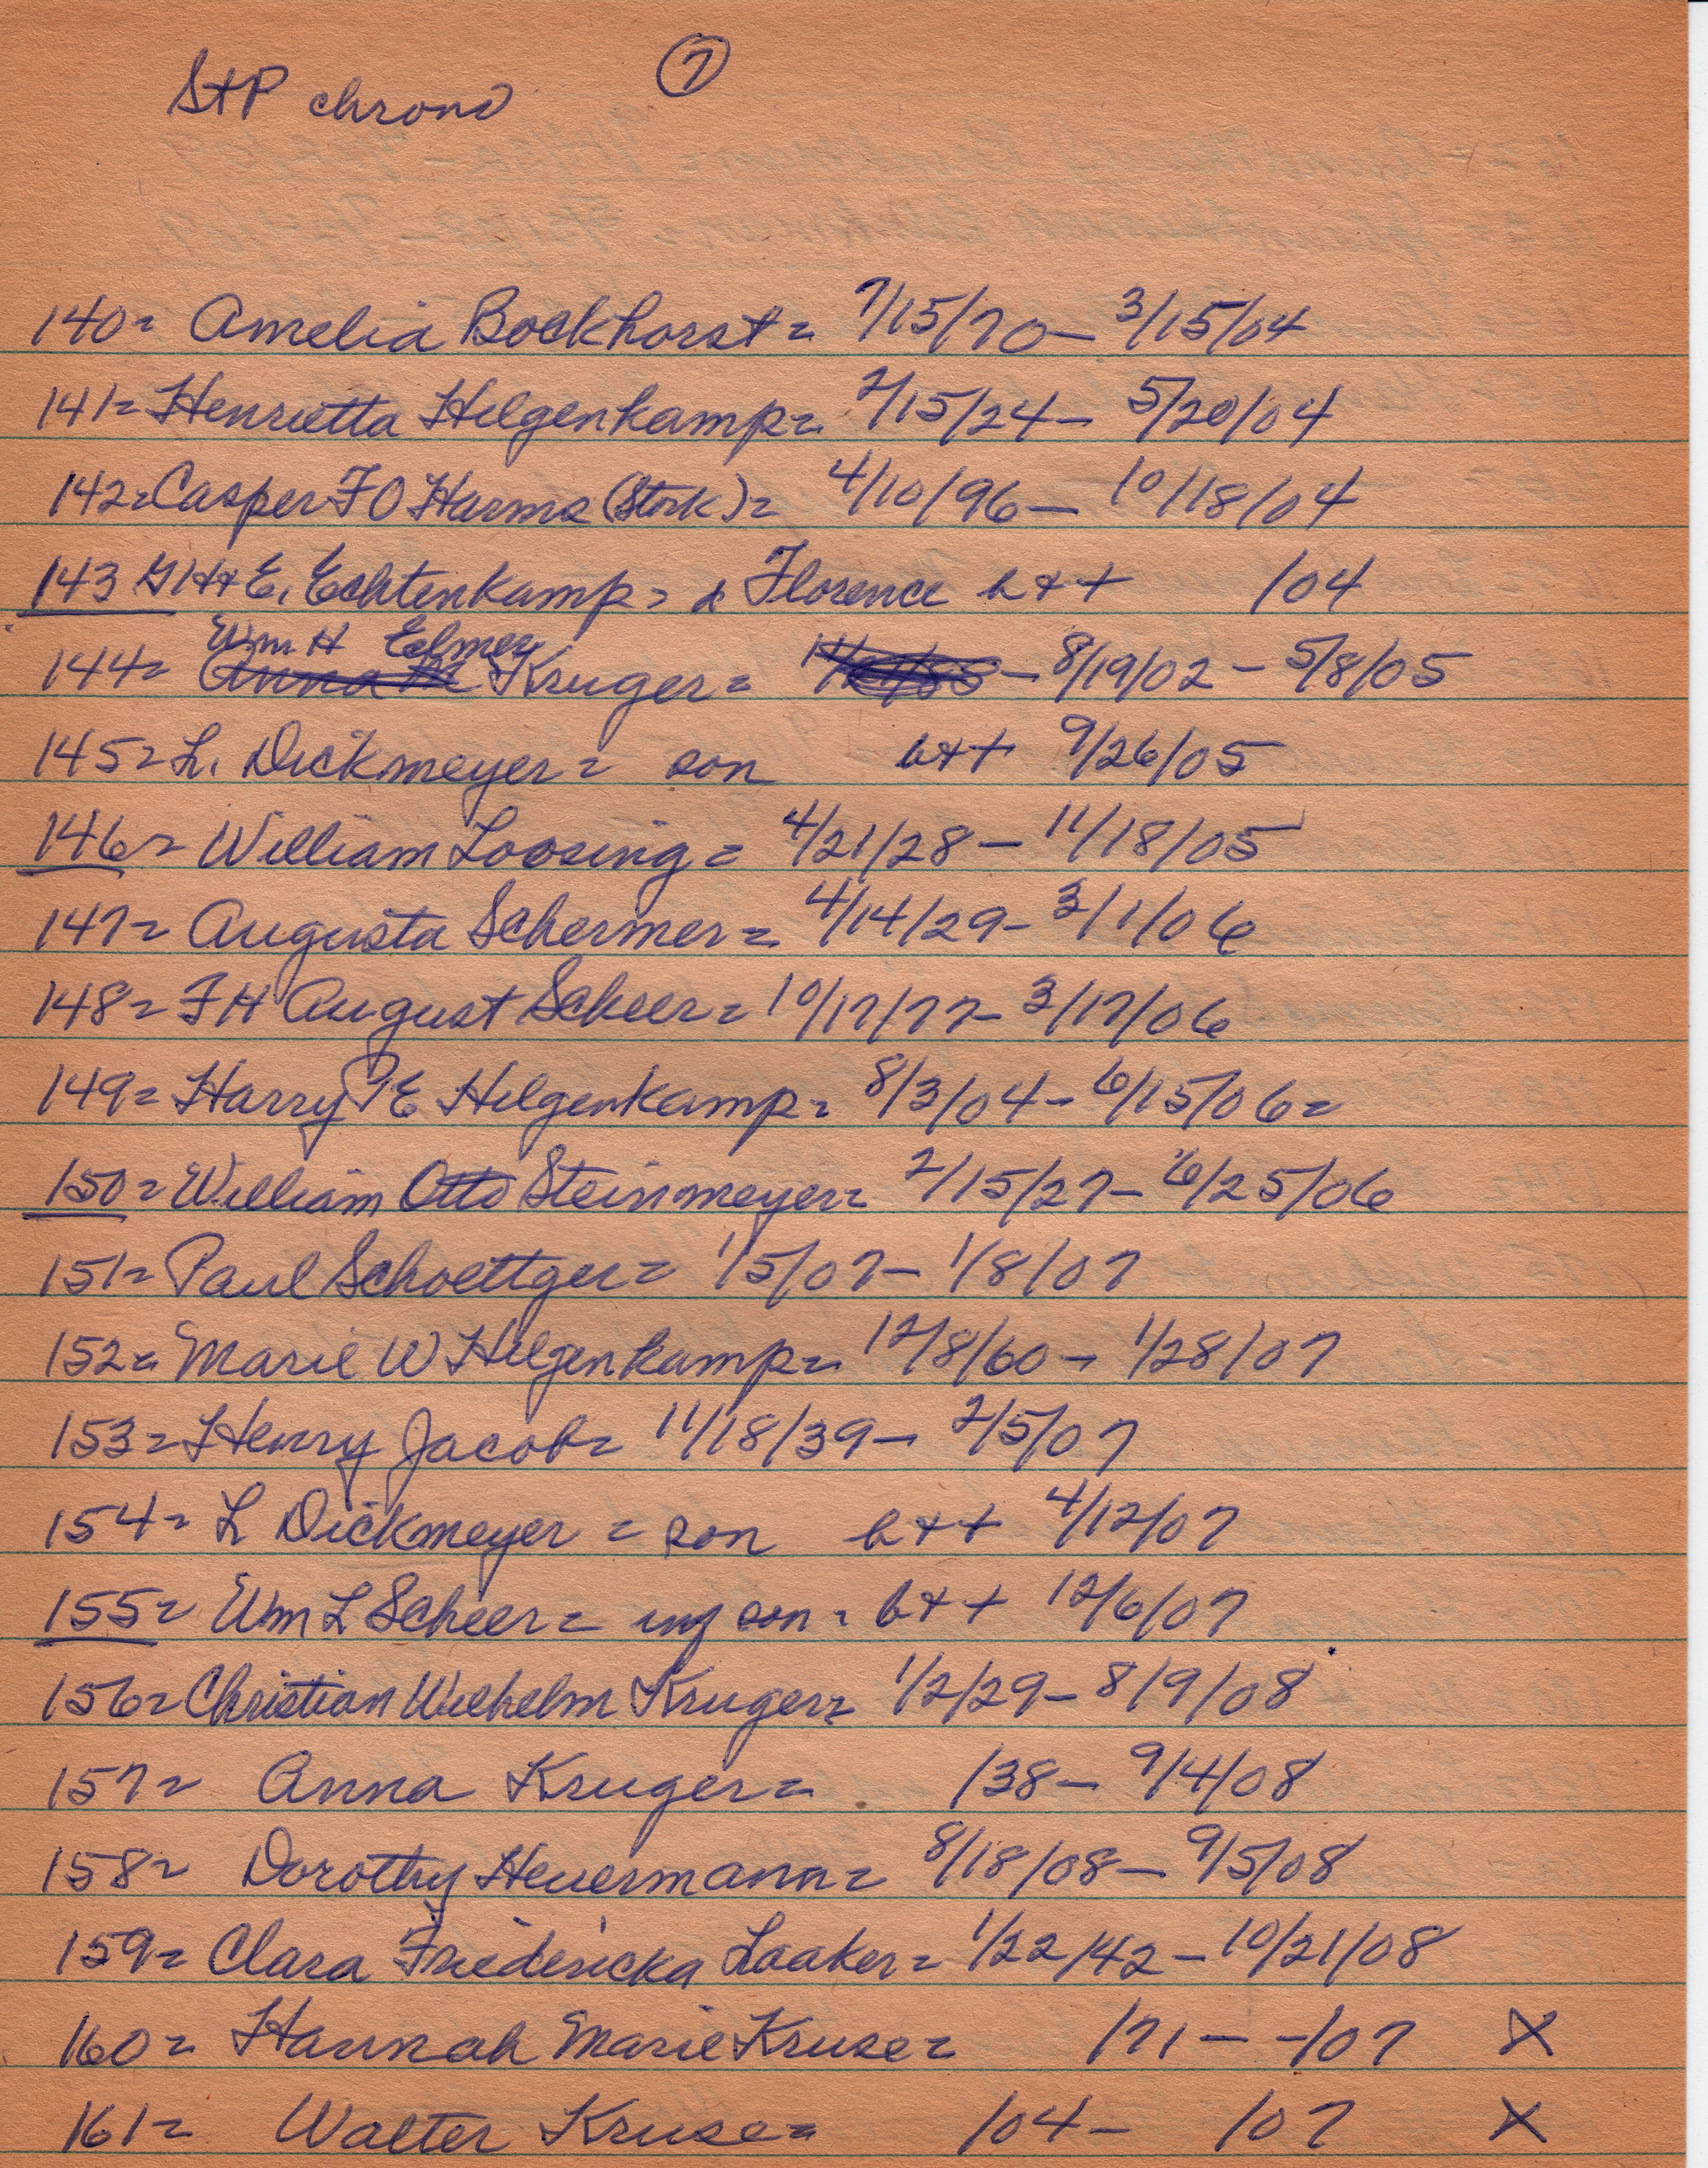 StP chrono ⑦
140= Amelia Bockhorst= 7/15/70- 3/15/04
141= Henrietta Hilgenkamp= 2/15/24- 5/20/04
142= Casper FO Harms (Stork)= 4/10/96- 10/18/04
143 GHH E. Echtenkamp= & Florence b++ /04
Wm H Elmer
144= Anna M Kruger= - 8/19/02 - 5/8/05
145= L. Dickmeyer= son b++ 9/26/05
146= William Loosing= 4/21/28- 11/18/05
147= Augusta Schermer= 4/14/29- 3/1/06
148= FH August Scheer= 10/17/77- 3/17/06
149= Harry P E Hilgenkamp= 8/3/04- 6/15/06=
150= William Otto Steinmeyer= 2/15/27- 6/25/06
151= Paul Schoettger= 1/5/07- 1/8/07
152= Marie W Hilgenkamp= 12/8/60- 1/28/07
153= Henry Jacob= 11/18/39- 2/5/07
154= L Dickmeyer = son b++ 4/12/07
155= Wm L Scheer= inf son = b++ 12/6/07
156= Christian Wilhelm Kruger= 1/2/29- 8/9/08
157= Anna Kruger= /38- 9/4/08
158= Dorothy Heuermann= 8/18/08- 9/5/08
159= Clara Friedericka Laaker= 1/22/42- 10/21/08
160= Hannah Marie Kruse= /71- -/07 X
161= Walter Kruse= /04- /07 X